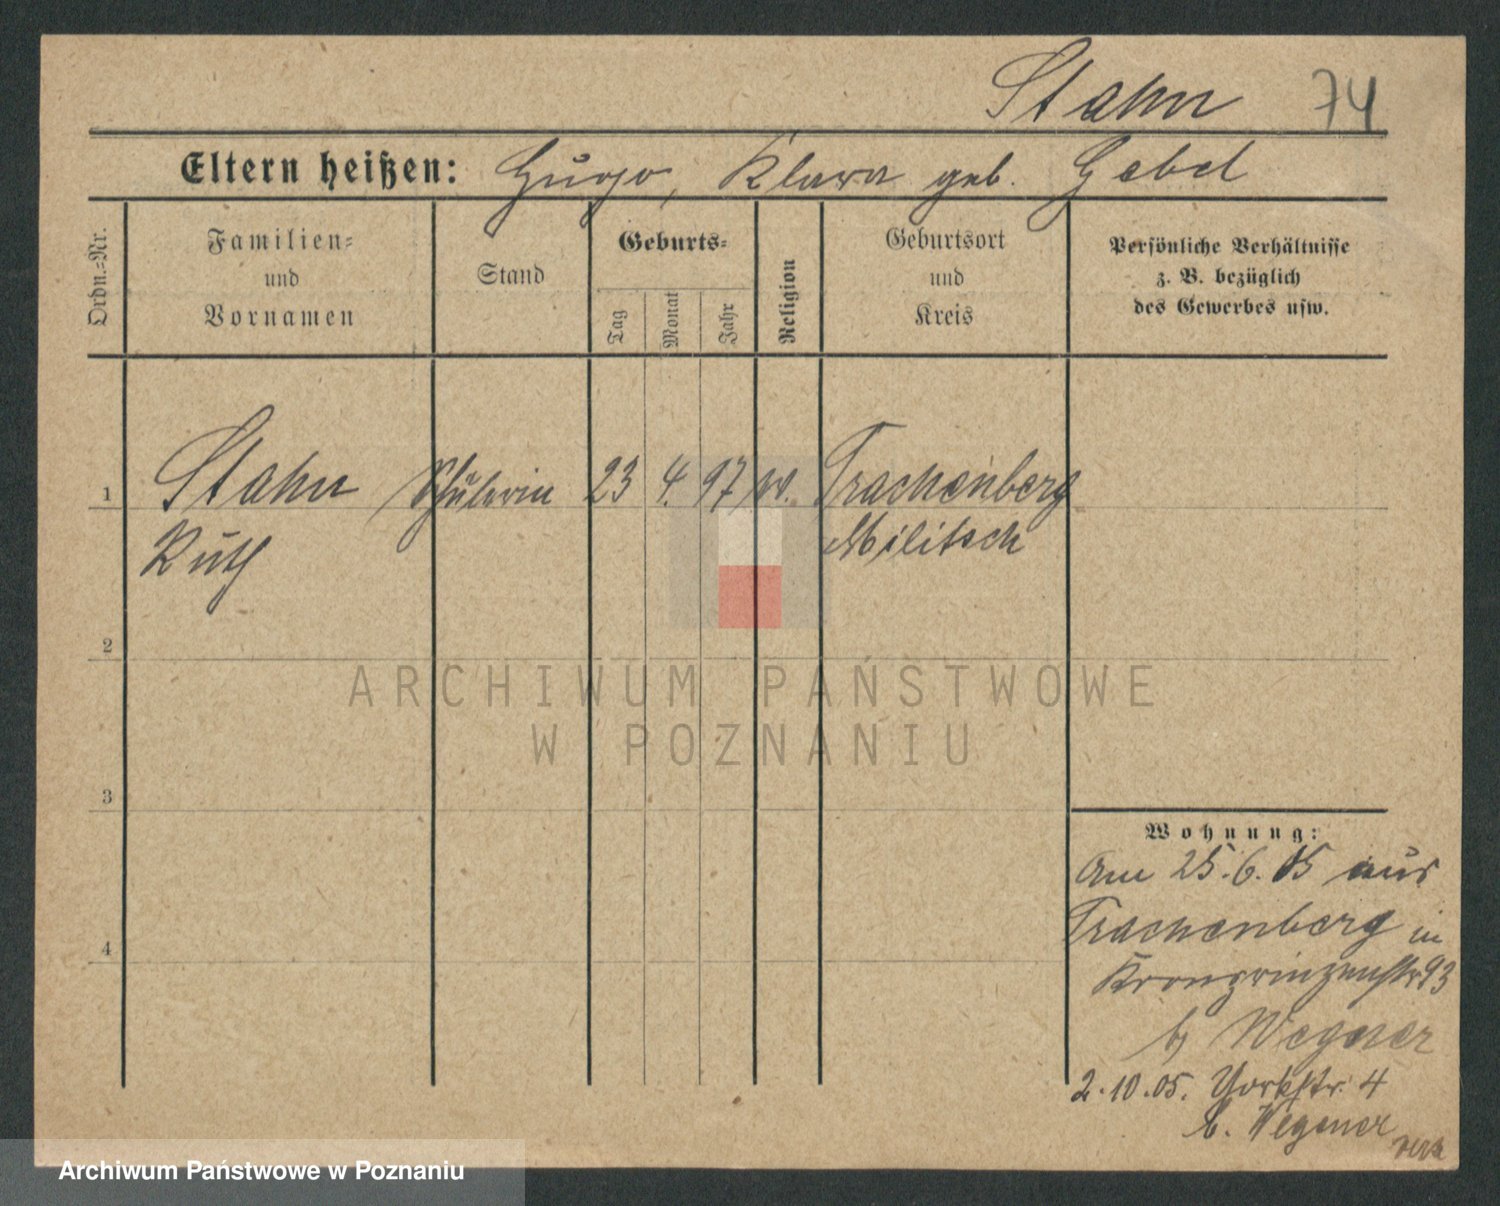 Stahn 74
Eltern heißen: Hugo, Klara geb. Gebel
Ordn.=Nr.
Familien=
und
Vornamen
Stand
Geburts=
Tag
Monat
Jahr
Religion
Geburtsort
und
Kreis
Persönliche Verhältnisse
z. B. bezüglich
des Gewerbes usw.
1 Stahn Schülerin 23 4. 97 Trachenberg
Ruth Militsch
2
3
4
Wohnung:
Am 25.6.05 aus
Trachenberg in
Kronprinzenstr 93
b/ Wegener
2.10.05. Yorkstr. 4
b. Wegener
ARCHIWUM PAŃSTWOWE
W POZNANIU
Archiwum Państwowe w Poznaniu